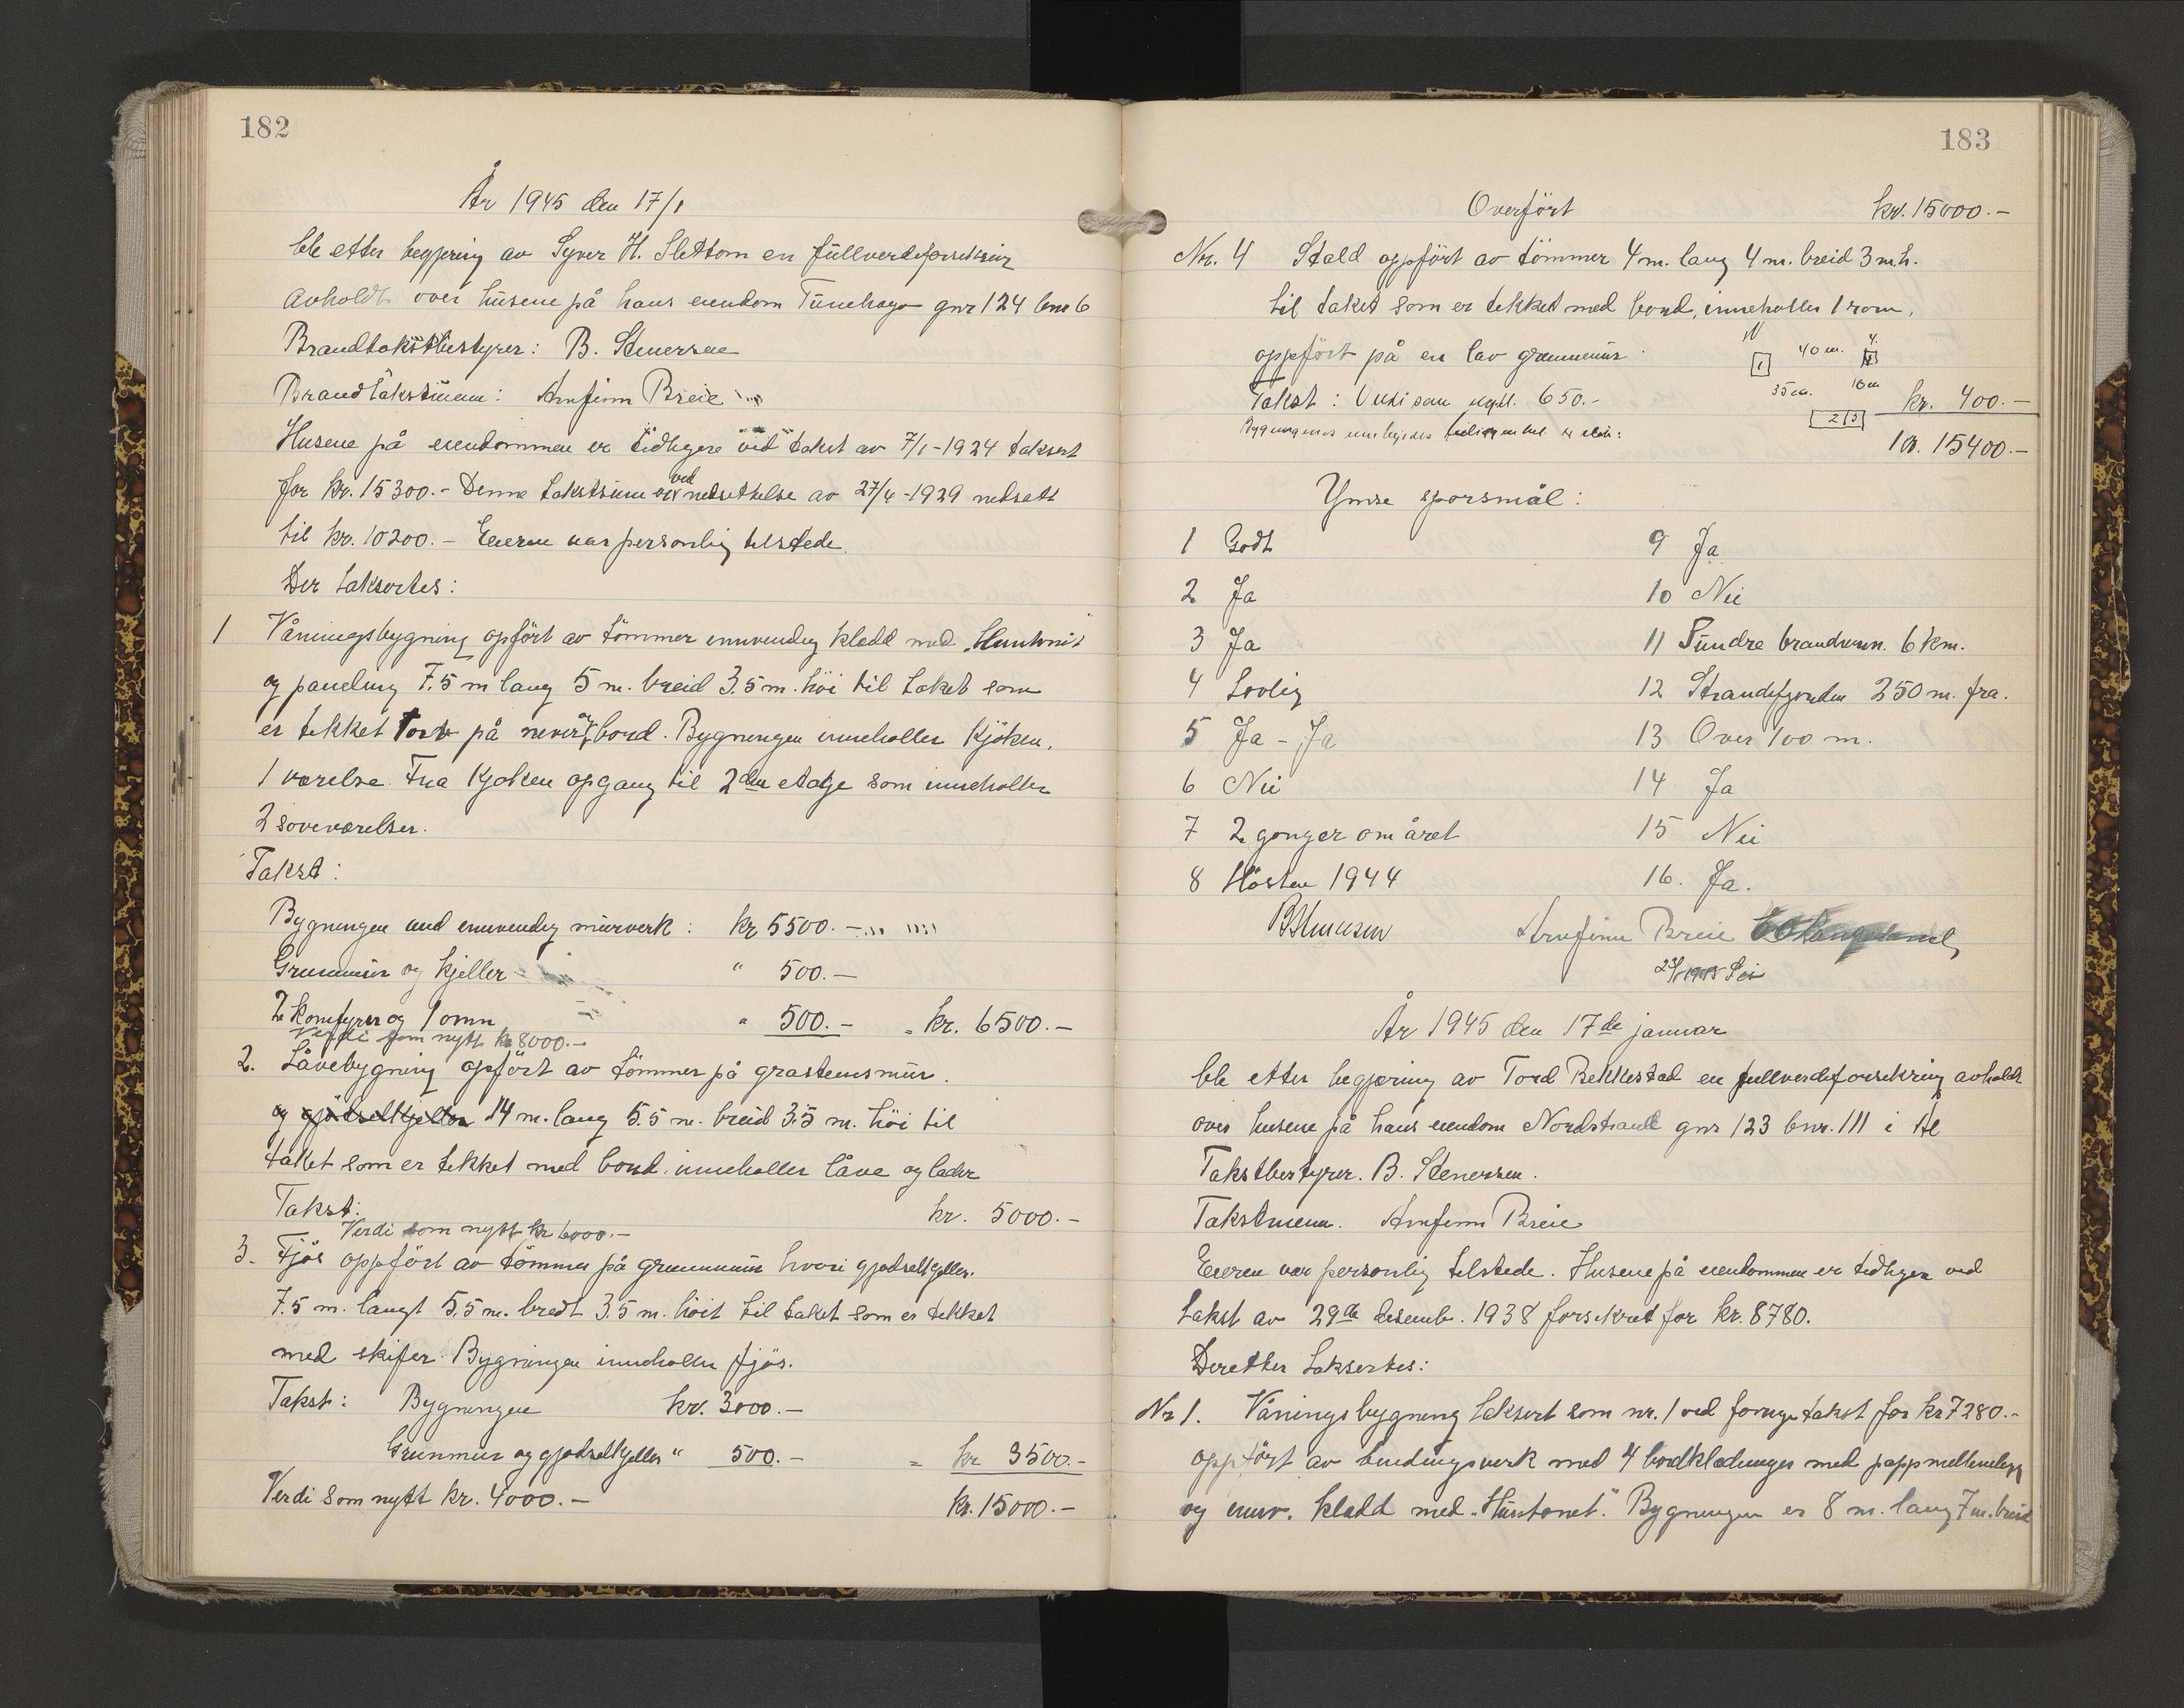 182
År 1945 den 17/1
ble etter begjæring av Syver H. Slettom en fullverdiforsikring
avholdt over husene på hans eiendom Tunehaga gnr 124 bnr 6
Brandtakstbestyrer: B. Stenersen
Brandtakstmenn: Arnfinn Breie
Husene på eiendommen er tidligere ved takst av 7/1-1924 taksert
for kr. 15300.- Denne takstsum er ved nedsettelse av 27/4-1929 nedsatt
til kr. 10200.- Eieren var personlig tilstede.
Der taksertes:
1 Våningsbygning opført av tømmer innvendig kledd med
og paneling 7.5 m lang 5 m. breid 3.5 m. høi til taket som
er tekket torv på never og bord. Bygningen inneholler kjøken,
1 værelse. Fra kjøken opgang til 2den etasje som inneholler
2 soveværelser.
Takst:
Bygningen med innvendig murverk: kr 5500.-
Grunnmur og kjeller " 500.-
2 komfyrer og 1 omn " 500.- = kr. 6500.-
Verdi som nytt kr 8000.-
2. Låvebygning opført av tømmer på grastensmur.
og gjødselkjeller 14 m. lang 5.5 m. breid 3.5 m. høi til
taket som er tekket med bord, inneholler låve og lader
Takst: kr. 5000.-
Verdi som nytt kr 6000.-
3. Fjøs oppført av tømmer på grunnmur hvori gjødselkjeller.
7.5 m. langt 5.5 m. bredt 3.5 m. høit til taket som er tekket
med skifer. Bygningen inneholler fjøs.
Takst: Bygningen kr. 3000.-
Grunmur og gjødselkjeller " 500.- = kr 3500.-
Verdi som nytt kr. 4000.- kr. 15000.-
183
Overført kr. 15000.-
Nr. 4 Stald oppført av tømmer 4 m. lang 4 m. breid 3 m h.
til taket som er tekket med bord, inneholler 1 rom,
oppført på en lav grunnmur.
N
1 40 m. 4.
35 m. 16 m
2 3
Takst: Verdi som nytt. 650.- kr. 400.-
Bygningenes innbyrdes
kr. 15400.-
Ymse spørsmål:
1 Godt
2 Ja
3 Ja
4 Lovlig
5 Ja - Ja
6 Nei
7 2 gonger om året
8 Høsten 1944
9 Ja
10 Nei
11 Sundre brandvern. 6 km.
12 Strandefjorden 250 m. fra.
13 Over 100 m.
14 Ja
15 Nei
16. Ja.
BStenersen Arnfinn Breie
År 1945 den 17de januar
ble etter begjæring av Tord Rekkestad en fullverdiforsikring avholdt
over husene på hans eiendom Nordstrand gnr 123 bnr. 111 i Ål
Takstbestyrer. B. Stenersen.
Takstmenn. Arnfinn Breie
Eieren var personlig tilstede. Husene på eiendommen er tidligere ved
takst av 29de desemb. 1938 forsikret for kr. 8780.
Deretter taksertes:
Nr 1. Våningsbygning taksert som nr. 1 ved forrige takst for kr 7280.-
oppført av bindingsverk med 4 bordkledninger med pappmellemlegg
og innv. kledd med "Huntonet". Bygningen er 8 m. lang 7 m. breid